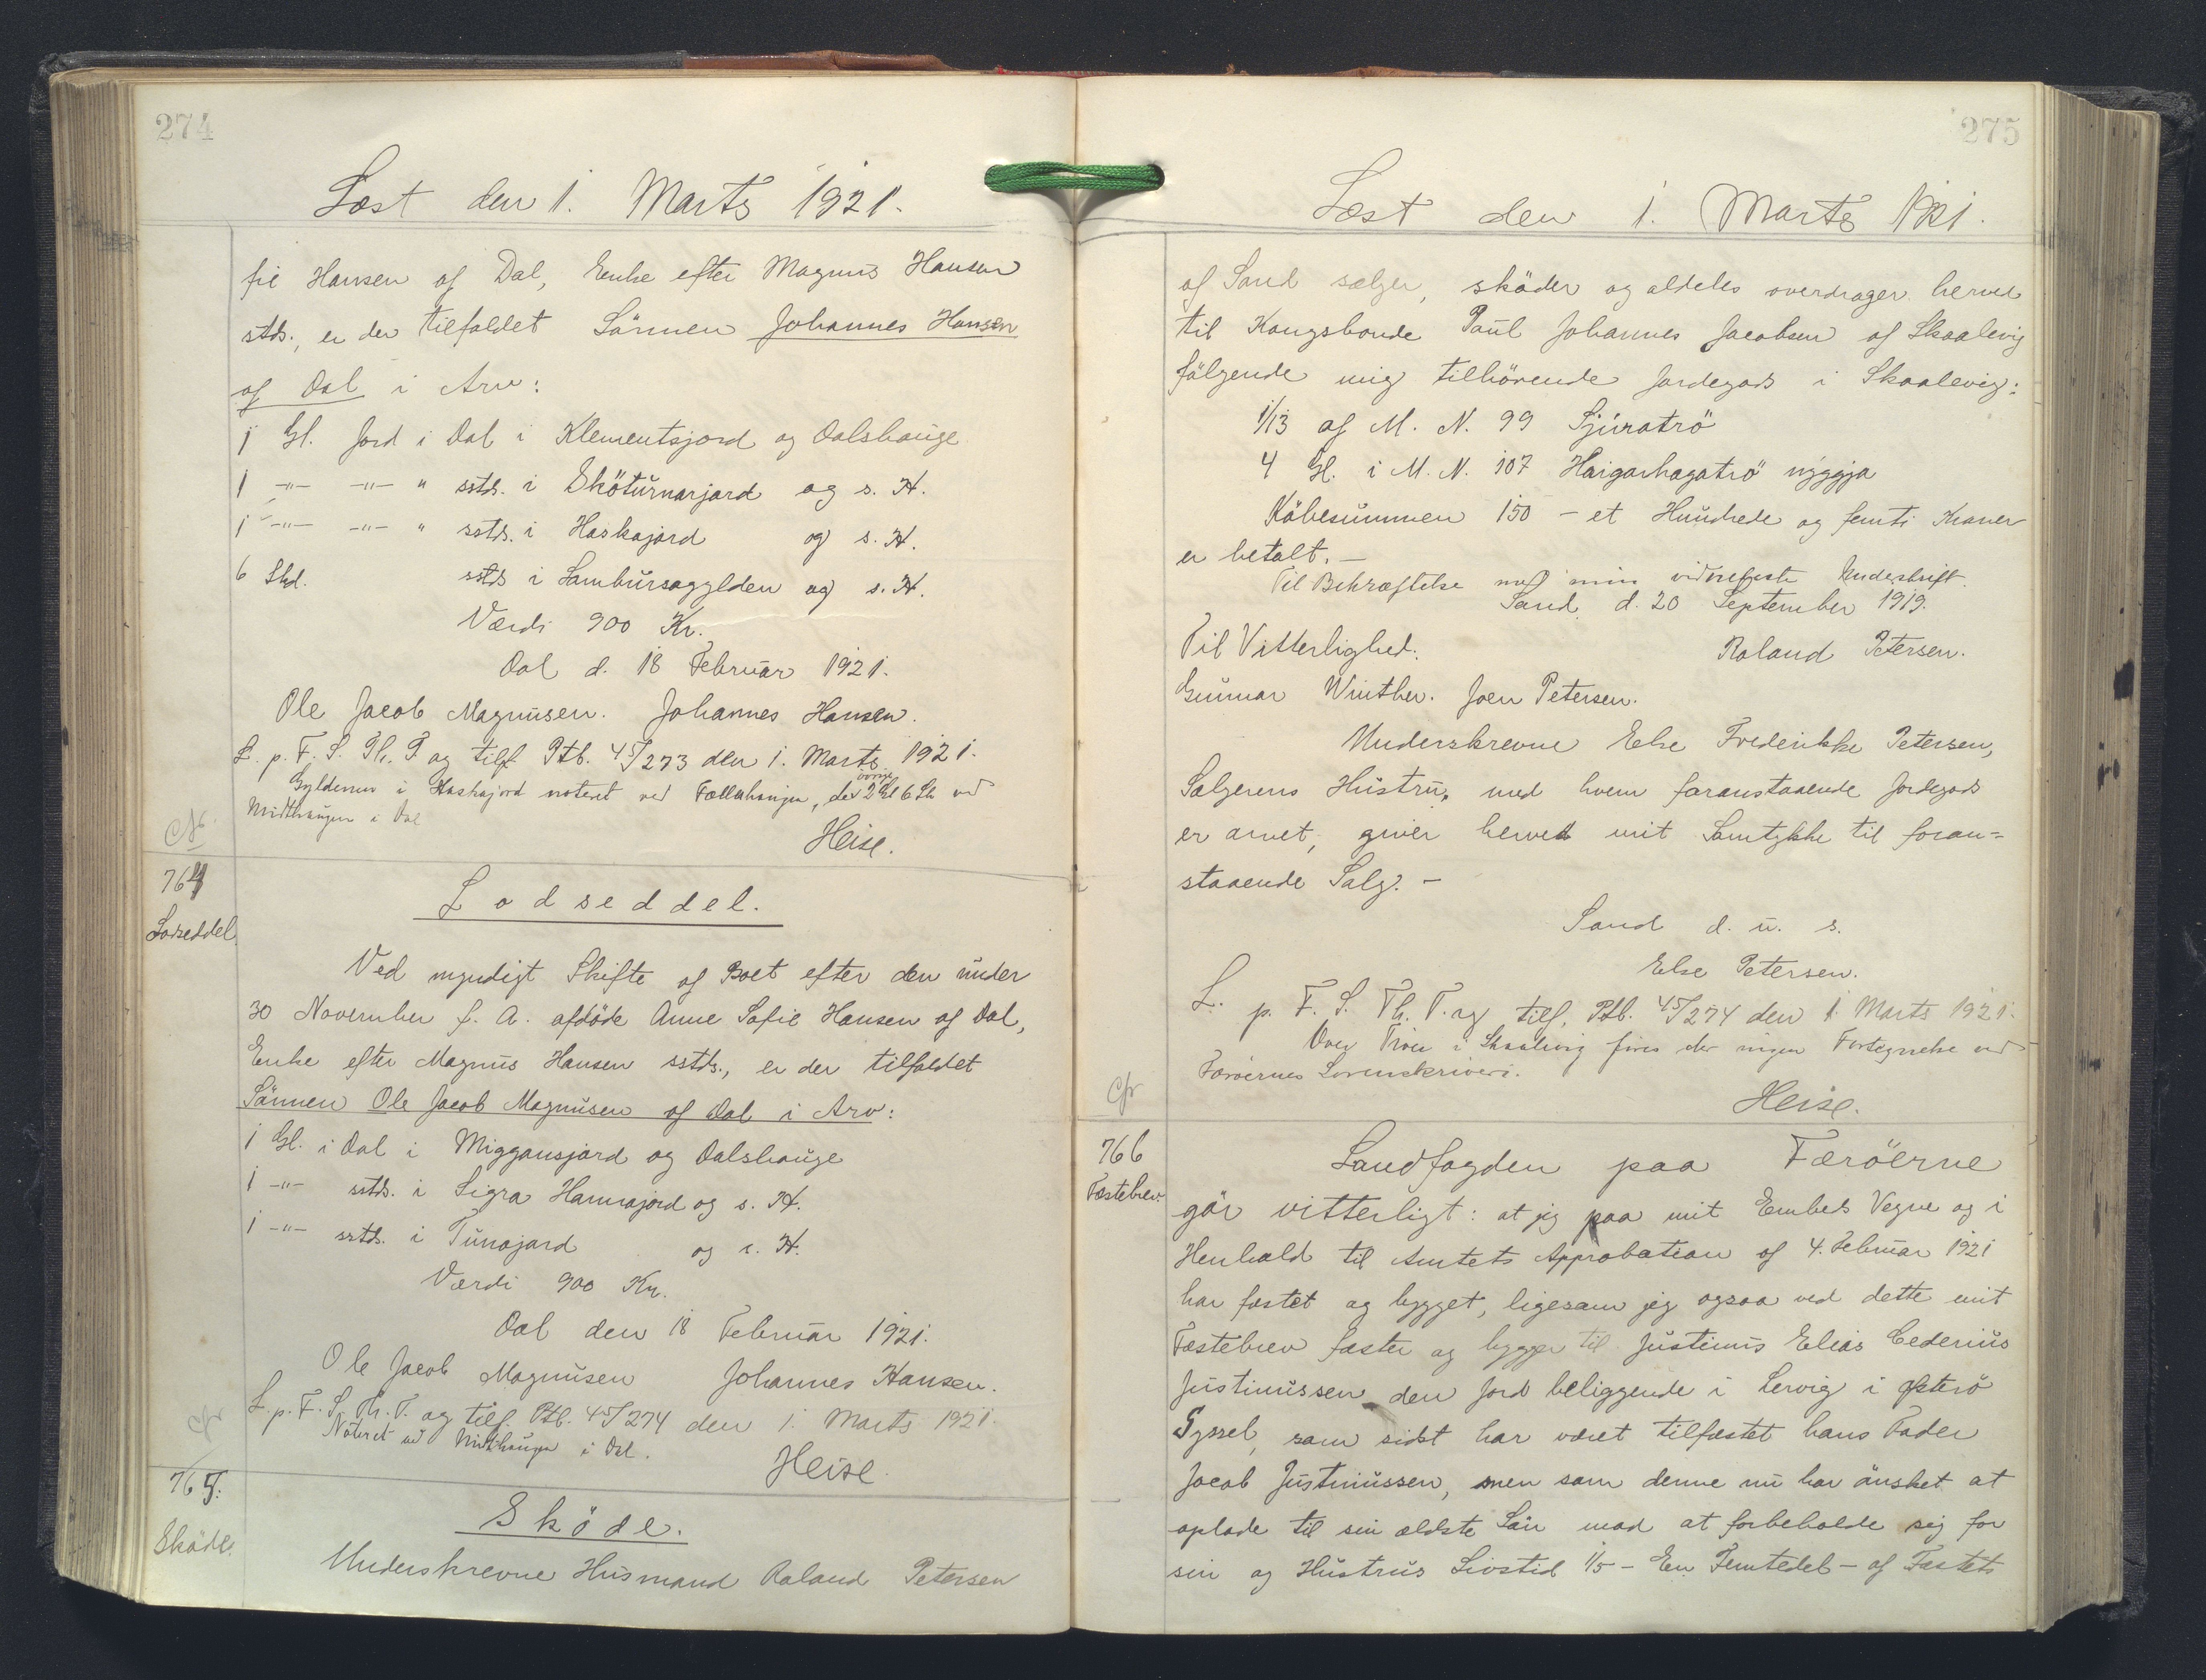 274
Læst den 1. Marts 1921.
fie Hansen af Dal, Enke efter Magnus Hansen
sstds., er der tilfaldet Sønnen Johannes Hansen
af Dal i Arv:
1 Gl. Jord i Dal i Klementsjord og Dalshauge
1 -"- -"- " sstds. i Sköturnarjord og s. H.
1 -"- -"- " sstds. i Haskajord og s. H.
6 Skd. sstds i Lambursagylden og s. H.
Værdi 900 Kr.
Dal d. 18 Februar 1921.
Ole Jacob Magnusen. Johannes Hansen.
L. p. F. S. Th. T. og tilf. Ptb. 45/273 den 1. Marts 1921.
Gyldenen i Haskajord noteret ved Fælleshaugen, de övrige 2 Gl 6 Sk ved
Midthaugen i Dal
Heise.
Cfr.
764
Lodseddel
Lodseddel.
Ved myndigt Skifte af Boet efter den under
30 November f. A. afdöde Anne Sofie Hansen af Dal,
Enke efter Magnus Hansen sstds., er der tilfaldet
Sönnen Ole Jacob Magnusen af Dal i Arv:
1 Gl. i Dal i Miggansjord og Dalshauge
1 -"- sstds. i Sigra Hannajord og s. H.
1 -"- sstds. i Tunajord og s. H.
Værdi 900 Kr.
Dal den 18 Februar 1921.
Ole Jacob Magnusen Johannes Hansen.
L. p. F. S. Th. T. og tilf. Ptb. 45/274 den 1. Marts 1921.
Noteret ved Midthaugen i Dal.
Heise.
Cfr
765.
Sköde.
Sköde.
Underskrevne Husmand Roland Petersen
275
Læst den 1. Marts 1921.
af Sand sælger, sköder og aldeles overdrager herved
til Kongsbonde Paul Johannes Jacobsen af Skaalevig
fölgende mig tilhörende Jordegods i Skaalevig:
1/13 af M. N. 99 Sjúratrö
4 Gl. i M. N. 107 Haigarhagatrö nýggja
Köbesummen 150 - et Hundrede og femti Kroner
er betalt. -
Til Bekræftelse med min vidnefaste Underskrift.
Sand, d. 20 September 1919.
Til Vitterlighed: Roland Petersen.
Gunnar Winther. Joen Petersen.
Underskrevne Else Frederikke Petersen,
Sælgerens Hustru, med hvem foranstaaende Jordegods
er arvet, giver herved mit Samtykke til foran=
staaende Salg. -
Sand d. u. s.
Else Petersen.
L. p. F. S. Th. T. og tilf. Ptb. 45/274 den 1 Marts 1921.
Over Tröer i Skaalevig föres der ingen Fortegnelse ved
Færöernes Sorenskriveri.
Heise.
Cfr
766
Fæstebrev.
Landfogden paa Færöerne
gör vitterligt: at jeg paa mit Embeds Vegne og i
Henhold til Amtets Approbation af 4. Februar 1921
har fæstet og bygget, ligesom jeg ogsaa ved dette mit
Fæstebrev fæster og bygger til Justinus Elias Cederius
Justinussen den Jord beliggende i Lervig i Østerö
Syssel, som sidst har været tilfæstet hans Fader
Jacob Justinussen, men som denne nu har önsket at
oplade til sin ældste Sön mod at forbeholde sig for
sin og Hustrus Livstid 1/5 - En Femtedel - af Fæstets